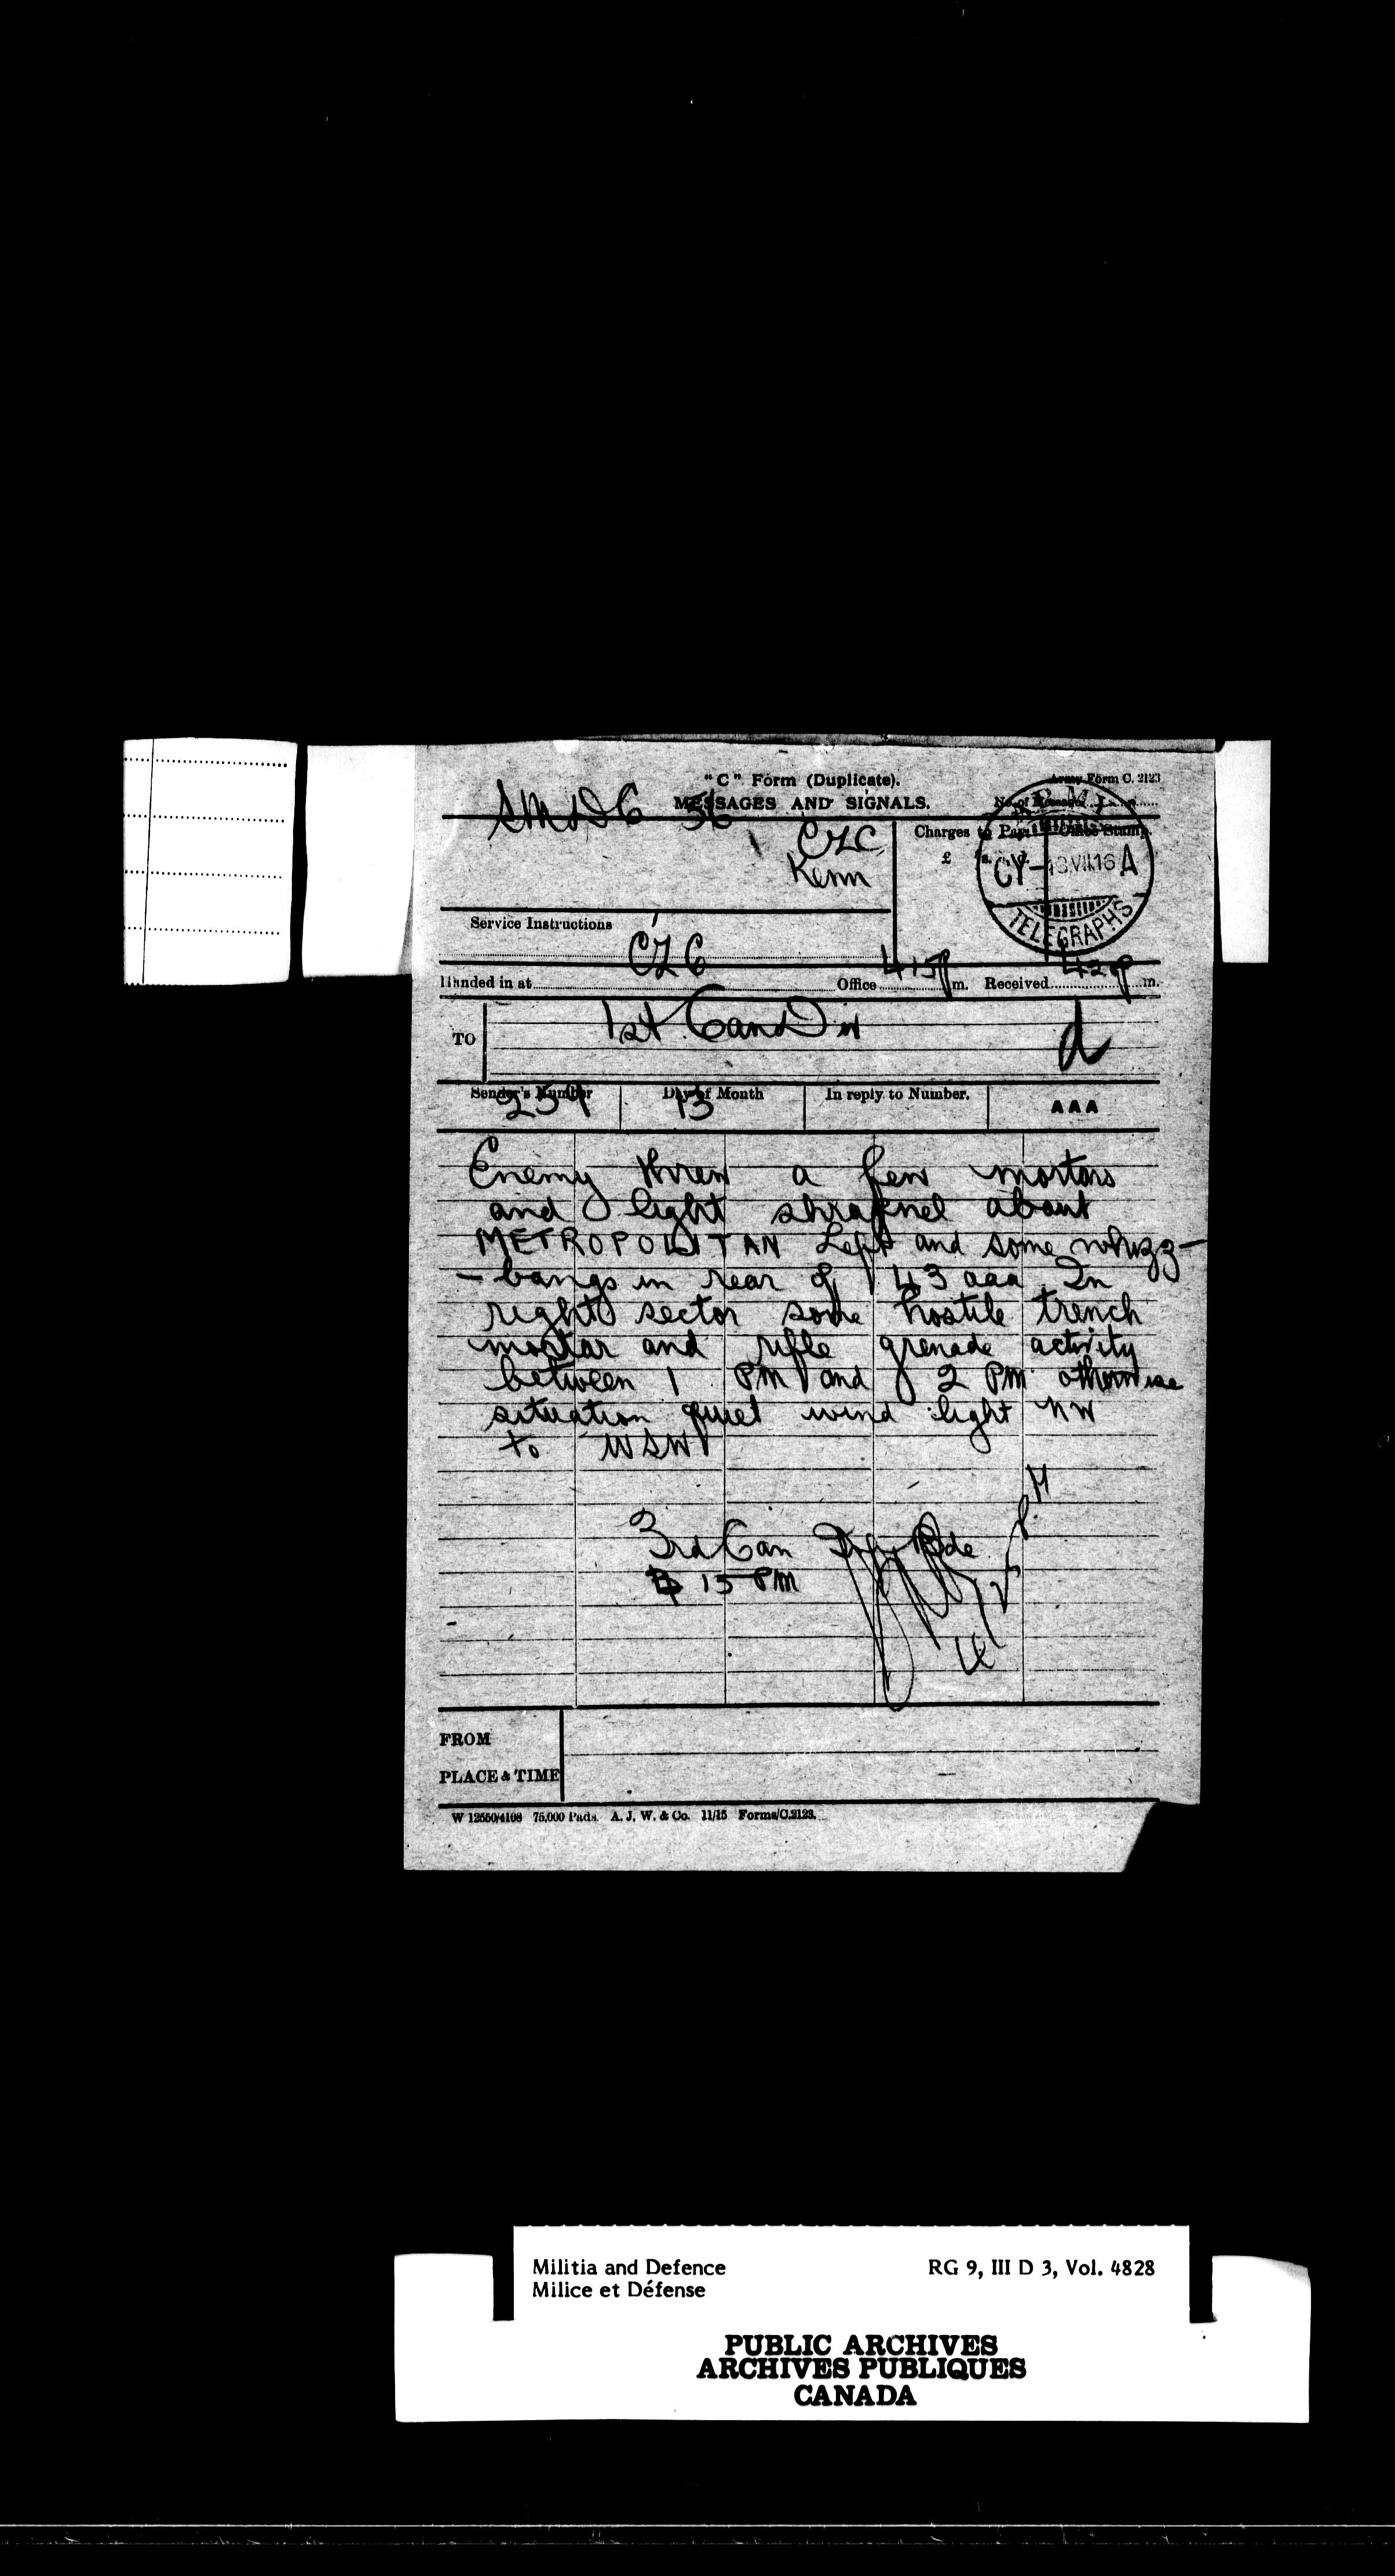 "C" Form (Duplicate).
Army Form C. 2123
MESSAGES AND SIGNALS.
No. of Message
SMDC 56
CZC
Kenn
Charges to Pay.
Office Stamp.
£ s. d.
CY -13.VII.16 A
TELEGRAPHS
Service Instructions
CZC
Handed in at Office 415 p m. Received 429 p m.
TO 1st Can Div
d
Sender's Number
Day of Month
In reply to Number.
AAA
259 13
Enemy threw a few mortars
and light shrapnel about
METROPOLITAN Left and some whizz-
- bangs in rear of 143 aaa In
right sector some hostile trench
mortar and rifle grenade activity
between 1 PM and 2 PM otherwise
situation quiet wind light NW
to WSW
3rd Can Infy Bde
15 PM
FROM
PLACE & TIME
W 12550/4108 75,000 Pads. A. J. W. & Co. 11/15 Forms/C.2123.
Militia and Defence
Milice et Défense
RG 9, III D 3, Vol. 4828
PUBLIC ARCHIVES
ARCHIVES PUBLIQUES
CANADA